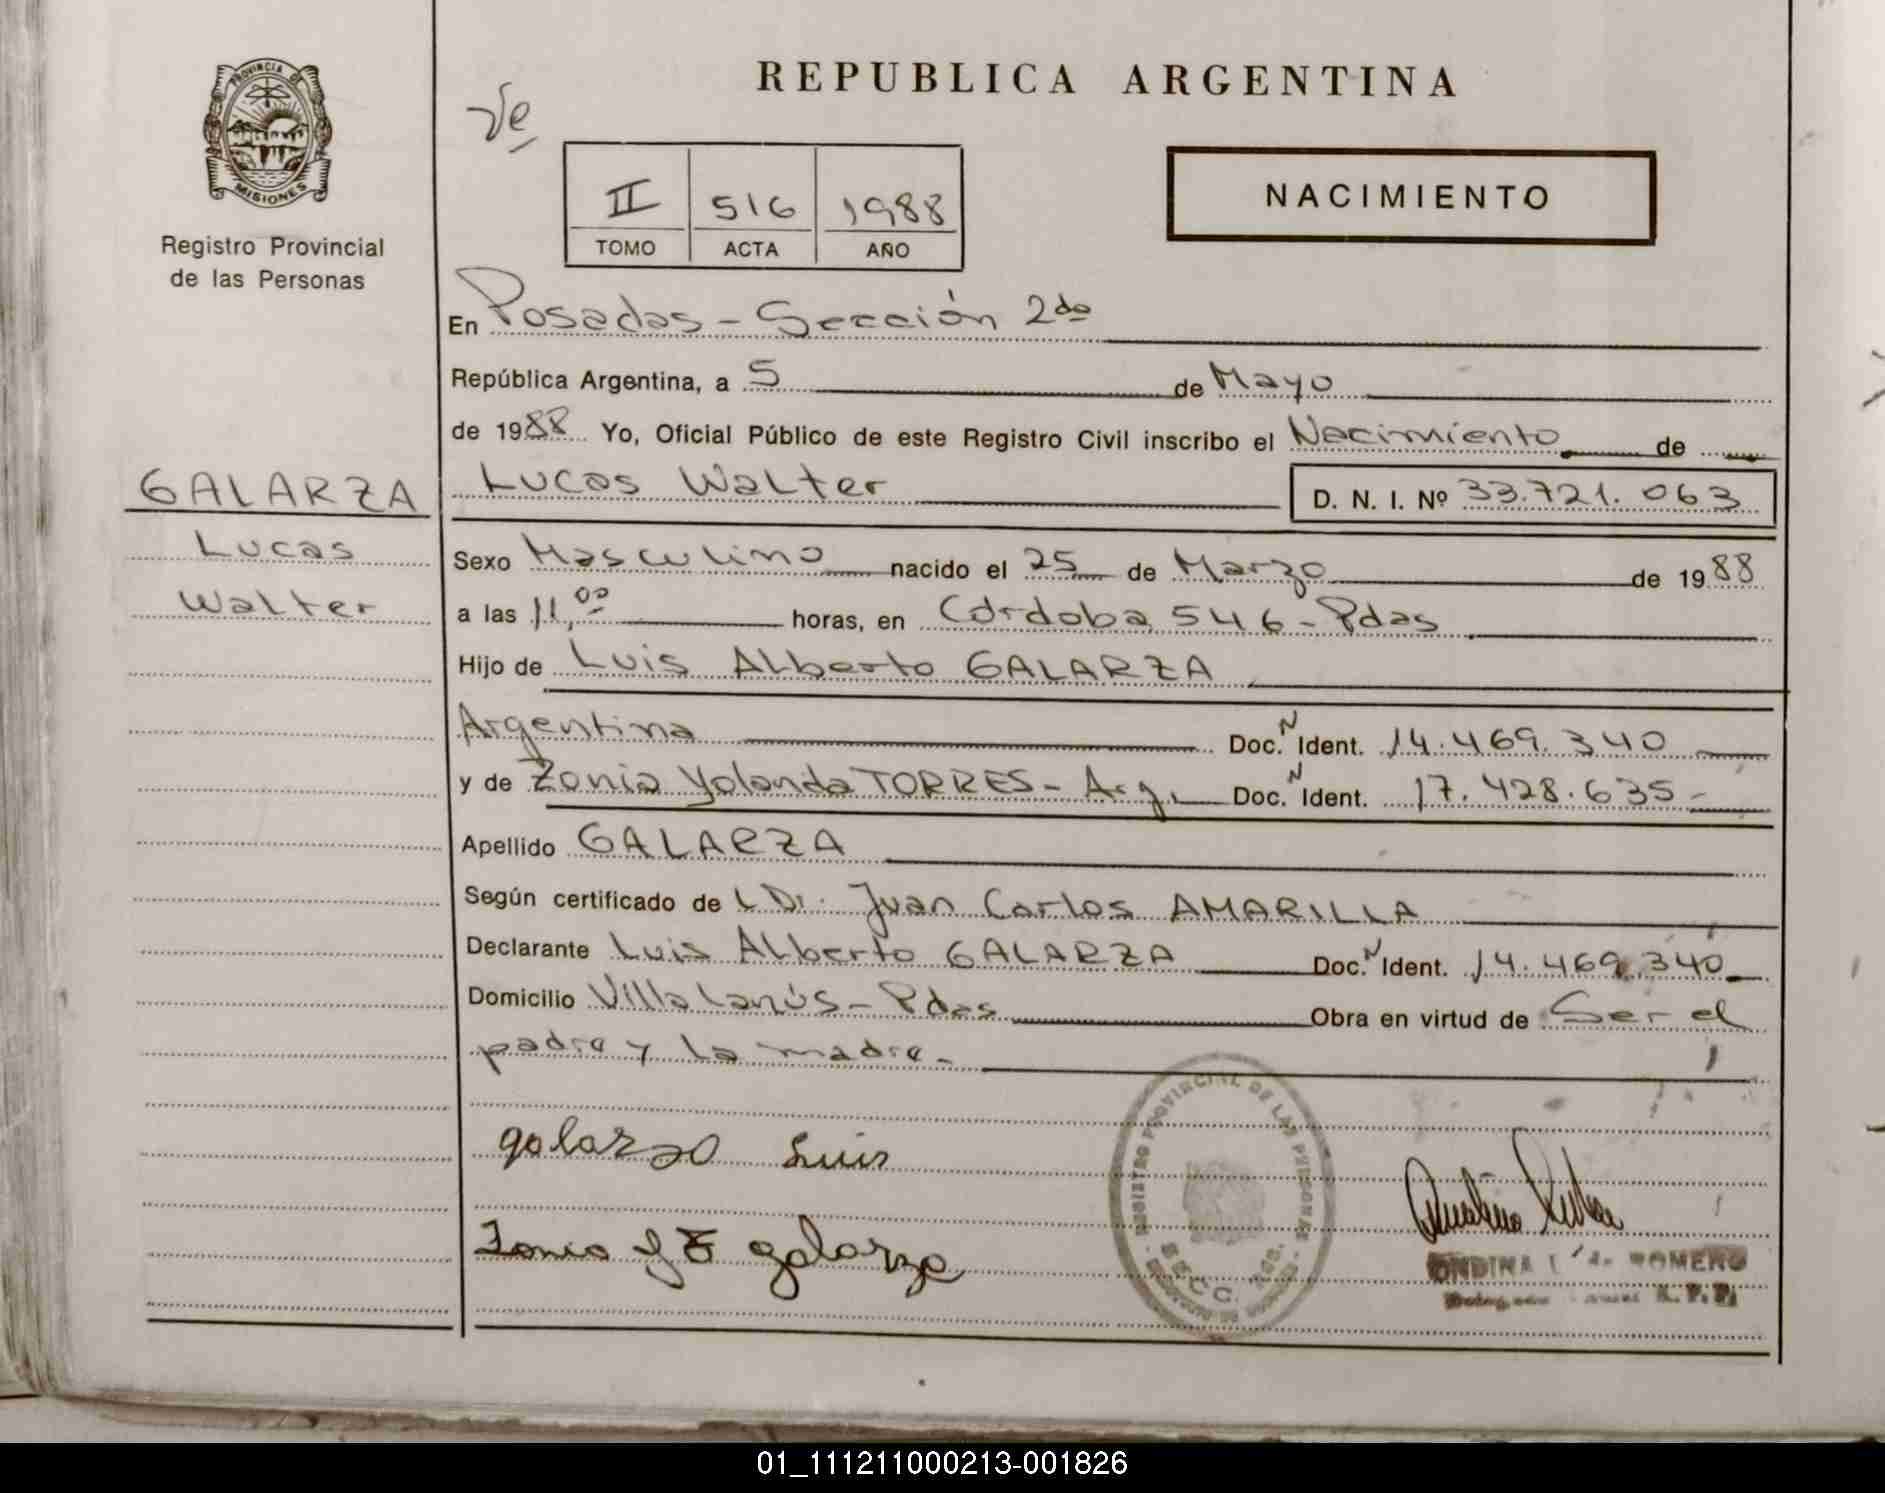 REPUBLICA ARGENTINA
PROVINCIA DE MISIONES
Registro Provincial
de las Personas
II 516 1988
TOMO ACTA AÑO
NACIMIENTO
En Posadas - Sección 2da
República Argentina, a 5 de Mayo
de 1988 Yo, Oficial Público de este Registro Civil inscribo el Nacimiento de
GALARZA
Lucas
Walter
Lucas Walter D. N. I. Nº 33.721.063
Sexo Masculino nacido el 25 de Marzo de 1988
a las 11,00 horas, en Córdoba 546 - Pdas
Hijo de Luis Alberto GALARZA
Argentina Doc. N Ident. 14.469.340
y de Zonia Yolanda TORRES - Arg. Doc. N Ident. 17.428.635 -
Apellido GALARZA
Según certificado de L Dr. Juan Carlos AMARILLA
Declarante Luis Alberto GALARZA Doc. N Ident. 14.469.340
Domicilio Villa Lanús - Pdas Obra en virtud de Ser el
padre y la madre -
galarza Luis
Zonia Y T galarza
REGISTRO PROVINCIAL DE LAS PERSONAS
SECC. 2da.
ONDINA ROMERO
R. P. P.
01_111211000213-001826